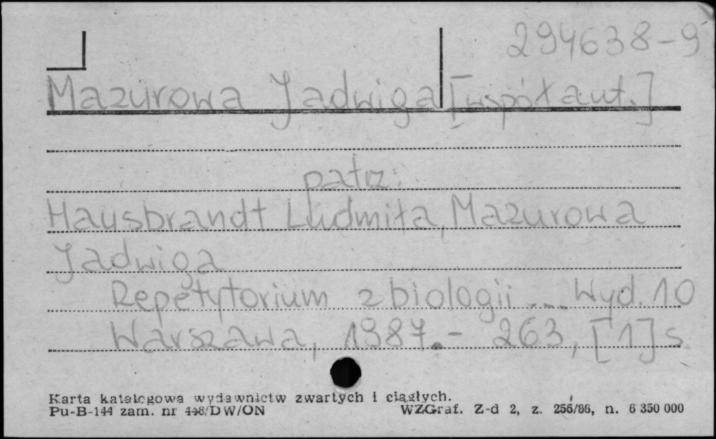 294638-9
Mazurowa Jadwiga [współaut.]
patrz:
Hausbrandt Ludmiła, Mazurowa
Jadwiga
Repetytorium z biologii ... Wyd. 10
Warszawa, 1987.- 263, [1] s.
Karta katalogowa wydawnictw zwartych i ciągłych.
Pu-B-144 zam. nr 448/DW/ON WZGraf. Z-d 2, z. 256/86, n. 6 350 000